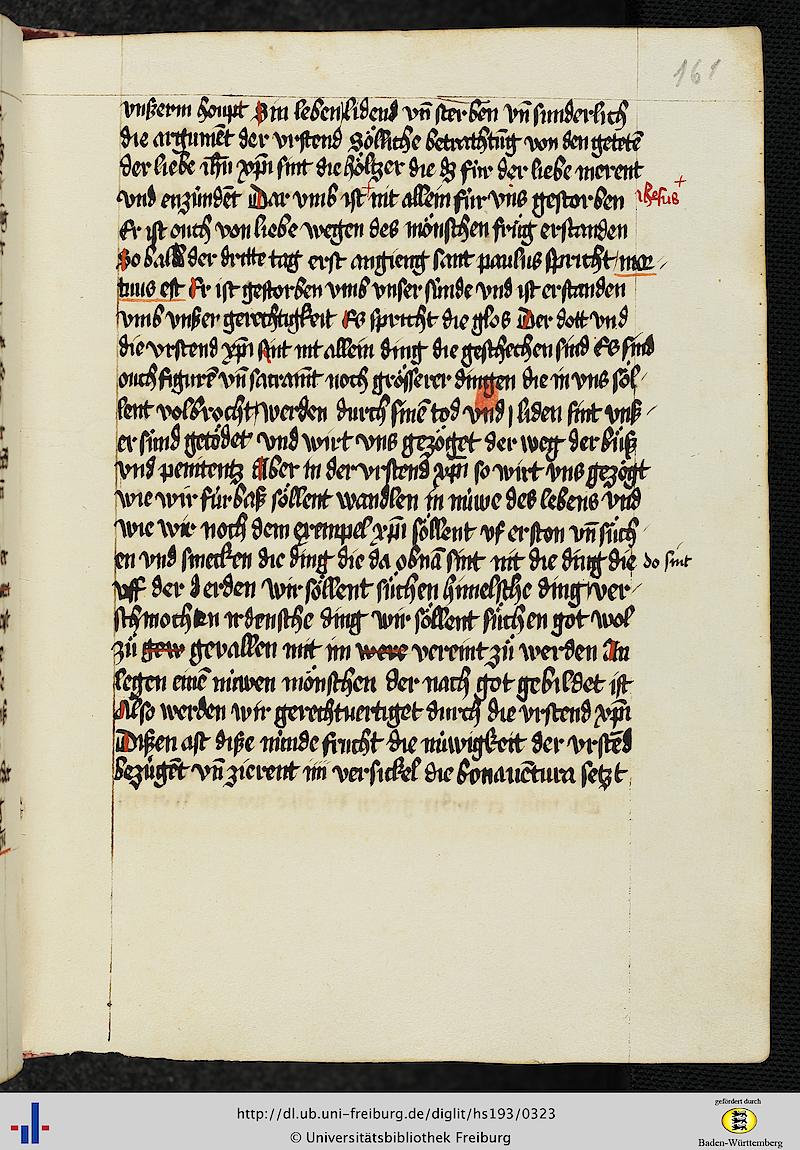 161
vnßerm houpt Sin leben lidend vñ sterben vñ sunderlich
die argumēt der vrstend Sölliche betrachtūg von den getetē
der liebe ih̄u xp̄i sint die höltzer die dz für der liebe merent
vnd enzündēt Dar vmb ist + nit allein für vns gestorben ihesus +
Er ist ouch von liebe wegen des mönschen früg erstanden
So bald der dritte tag erst angieng sant paulus spricht mor-
tuus est Er ist gestorben vmb vnser sünde vnd ist erstanden
vmb vnßer gerechtigkeit Es spricht die glos Der dott vnd
die vrstend xp̄i sint nit allein ding die geschechen sind Es sind
ouch figurē vñ sacramīt noch grösserer dingen die in vns söl-
lent volbrocht werden durch sinē tod vnd liden sint vnß-
er sünd getödet vnd wirt vns gezöget der weg der büß
vnd penitentz Aber in der vrstend xp̄i so wirt vns gezögt
wie wir fürbaß söllent wandlen in nüwe des lebens vnd
wie wir noch dem exempel xp̄i söllent vf erston vñ süch-
en vnd smecken die ding die da obnā sint nit die ding die do sint
vff der erden wir söllent süchen himelsche ding ver-
schmochen irdensche ding wir söllent süchen got wol
zü gevallen mit im vereint zü werden An
legen einē nüwen mönschen der nach got gebildet ist
Also werden wir gerechtuertiget durch die vrstend xp̄i
Dißen ast diße nünde frucht die nüwigkeit der vrstēd
bezügēt vñ zierent iiii versickel die bonauētura setzt
http://dl.ub.uni-freiburg.de/diglit/hs193/0323
© Universitätsbibliothek Freiburg
gefördert durch
Baden-Württemberg